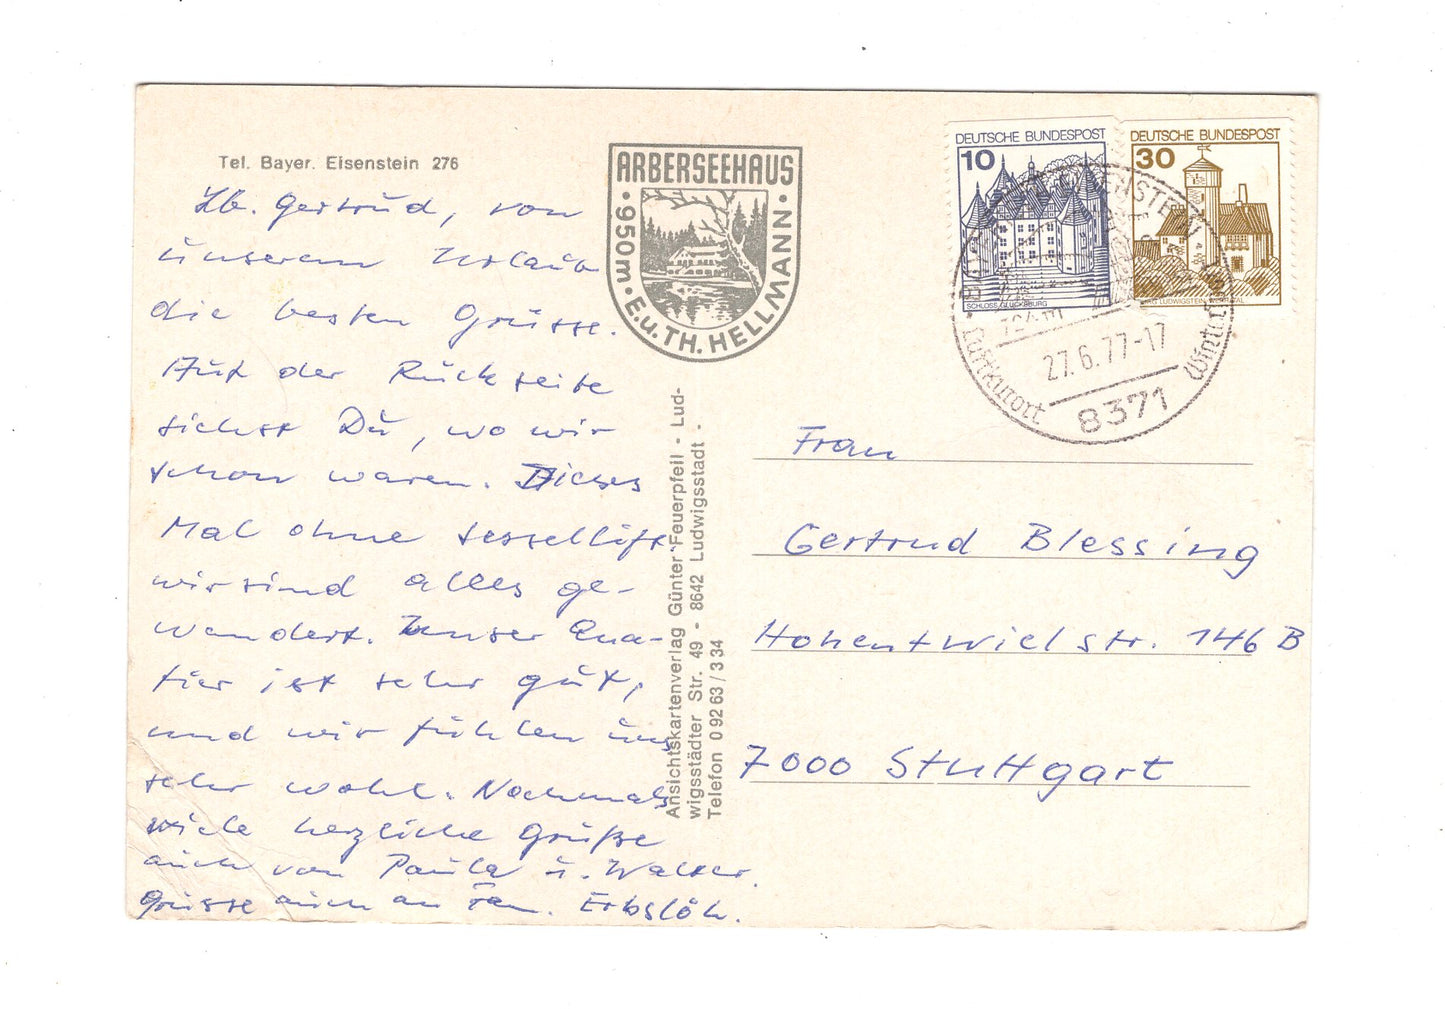 Tel. Bayer. Eisenstein 276
Lb. Gertrud, von
unserem Urlaub
die besten Grüsse.
Auf der Rückseite
siehst Du, wo wir
schon waren. Dieses
Mal ohne Sessellift
wir sind alles ge-
wandert. Unser Qua-
tier ist sehr gut,
und wir fühlen uns
sehr wohl. Nochmals
viele herzliche Grüße
auch von Paula u. Walter.
Grüsse auch an Fam. Erbslöh.
ARBERSEEHAUS
• 950m • E.u.TH. HELLMANN •
Ansichtskartenverlag Günter Feuerpfeil - Lud-
wigsstädter Str. 49 - 8642 Ludwigsstadt -
Telefon 0 92 63 / 3 34
DEUTSCHE BUNDESPOST
10
SCHLOSS GLÜCKSBURG
DEUTSCHE BUNDESPOST
30
BURG LUDWIGSTEIN, WERRATAL
724 m
27.6.77-17
Luftkurort
8371
Frau
Gertrud Blessing
Hohentwielstr. 146 B
7000 Stuttgart